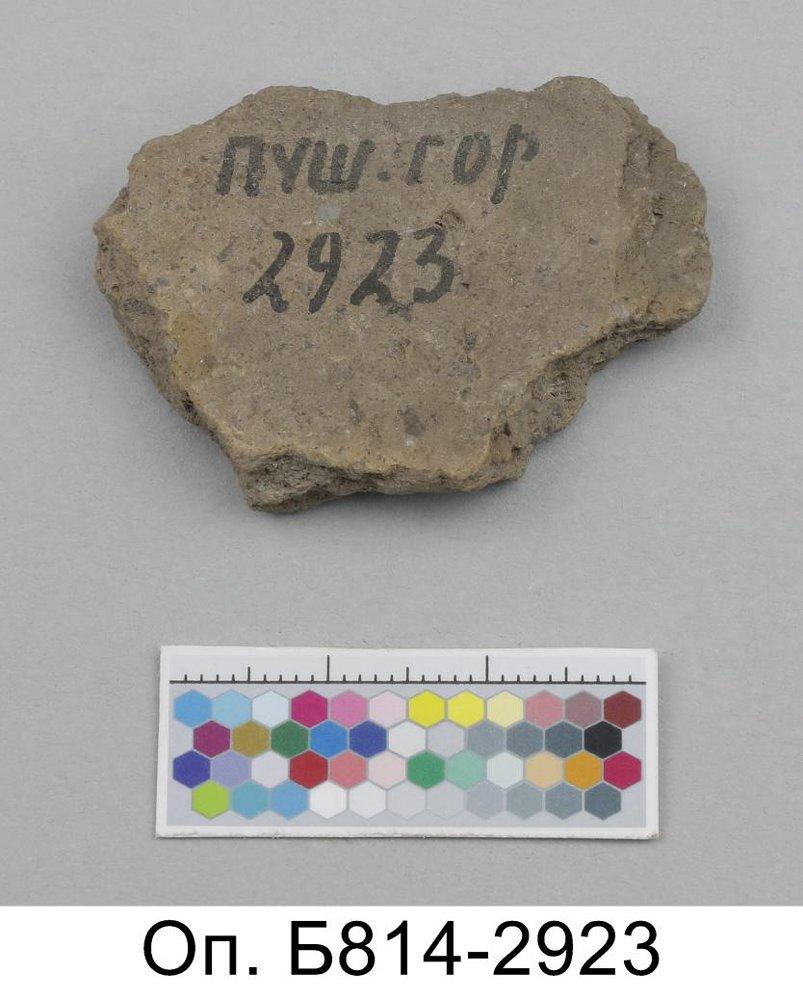 ПУШ.ГОР
2923
Оп. Б814-2923